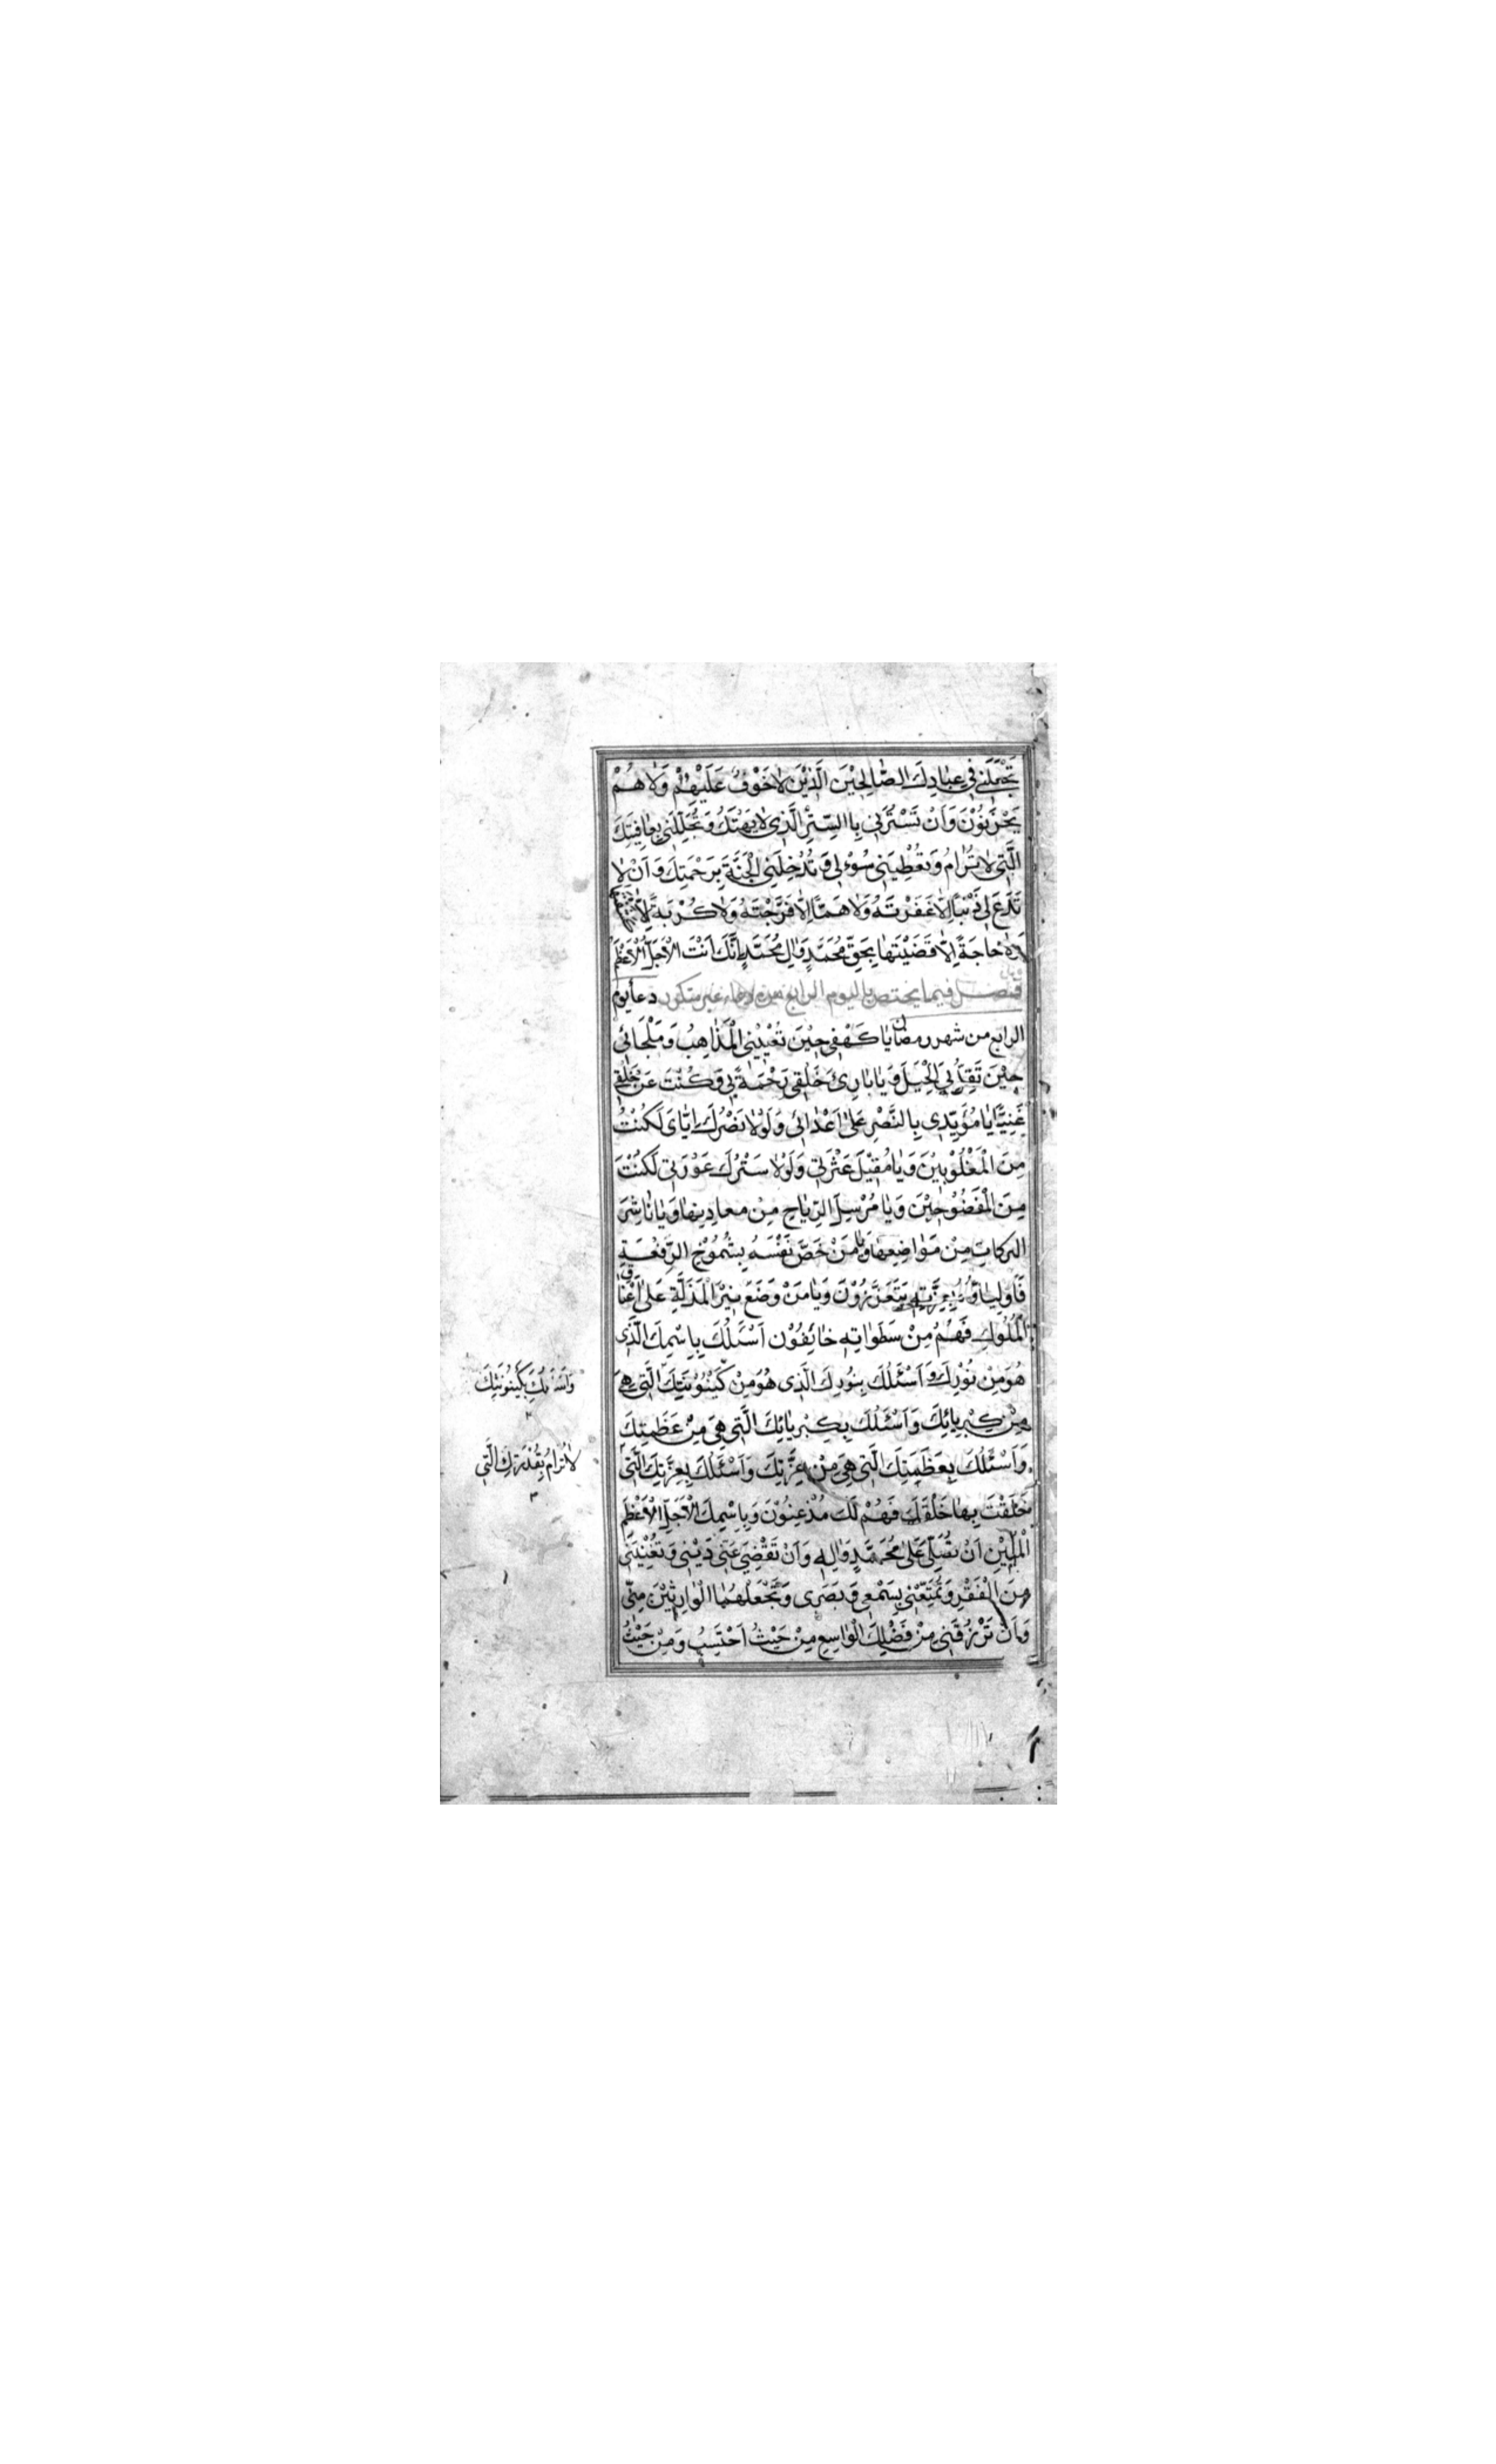 تَجْعَلَنِي فِي عِبَادِكَ الصَّالِحِيْنَ الَّذِيْنَ لَا خَوْفٌ عَلَيْهِمْ وَلَا هُمْ
يَحْزَنُوْنَ وَاَنْ تَسْتُرَنِي بِالسِّتْرِ الَّذِي لَا يُهْتَكُ وَتُجَلِّلَنِي بِعَافِيَتِكَ
الَّتِي لَا تُرَامُ وَتُعْطِيَنِي سُوْءلِي وَتُدْخِلَنِي الْجَنَّةَ بِرَحْمَتِكَ وَاَنْ لَا
تَدَعَ لِي ذَنْبًا اِلَّا غَفَرْتَهُ وَلَا هَمًّا اِلَّا فَرَّجْتَهُ وَلَا كُرْبَةً اِلَّا
حَاجَةً اِلَّا قَضَيْتَهَا بِحَقِّ مُحَمَّدٍ وَالِ مُحَمَّدٍ اِنَّكَ اَنْتَ الْاَجَلُّ الْاَعْظَمُ
فصل فيما يختص باليوم الرابع من دعاء غير متكرر دعأ يوم
الرابع من شهر رمضان يَا كَهْفِي حِيْنَ تُعْيِيْنِي الْمَذَاهِبُ وَمَلْجَائِي
حِيْنَ تَقِلُّ بِيَ الْحِيَلُ وَيَا بَارِئَ خَلْقِي رَحْمَةً بِي وَكُنْتَ عَنْ خَلْقِي
غَنِيًّا يَا مُؤَيِّدِي بِالنَّصْرِ عَلَى اَعْدَائِي وَلَوْلَا نَصْرُكَ اِيَّايَ لَكُنْتُ
مِنَ الْمَغْلُوْبِيْنَ وَيَا مُقِيْلَ عَثْرَتِي وَلَوْلَا سَتْرُكَ عَوْرَتِي لَكُنْتُ
مِنَ الْمَفْضُوْحِيْنَ وَيَا مُرْسِلَ الرِّيَاحِ مِنْ مَعَادِنِهَا وَيَا نَاشِرَ
الْبَرَكَاتِ مِنْ مَوَاضِعِهَا وَيَا مَنْ خَصَّ نَفْسَهُ بِشُمُوْخِ الرِّفْعَةِ
فَاَوْلِيَاؤُهُ بِعِزَّتِهِ يَتَعَزَّزُوْنَ وَيَا مَنْ وَضَعَ نِيْرَ الْمَذَلَّةِ عَلَى اَعْنَاقِ
الْمُلُوكِ فَهُمْ مِنْ سَطَوَاتِهِ خَائِفُوْنَ اَسْئَلُكَ بِاسْمِكَ الَّذِي
هُوَ مِنْ نُوْرِكَ وَاَسْئَلُكَ بِنُورِكَ الَّذِي هُوَ مِنْ كَيْنُوْنِيَّتِكَ الَّتِي هِيَ
مِنْ كِبْرِيَائِكَ وَاَسْئَلُكَ بِكِبْرِيَائِكَ الَّتِي هِيَ مِنْ عَظَمَتِكَ
وَاَسْئَلُكَ بِعَظَمَتِكَ الَّتِي هِيَ مِنْ عِزَّتِكَ وَاَسْئَلُكَ بِعِزَّتِكَ الَّتِي
خَلَقْتَ بِهَا خَلْقَكَ فَهُمْ لَكَ مُذْعِنُوْنَ وَبِاسْمِكَ الْاَجَلِّ الْاَعْظَمِ
الْمُبِيْنِ اَنْ تُصَلِّيَ عَلَى مُحَمَّدٍ وَالِهِ وَاَنْ تَقْضِيَ عَنِّي دَيْنِي وَتُغْنِيَنِي
مِنَ الْفَقْرِ وَتُمَتِّعَنِي بِسَمْعِي وَبَصَرِي وَتَجْعَلَهُمَا الْوَارِثِيْنَ مِنِّي
وَاَنْ تَرْزُقَنِي مِنْ فَضْلِكَ الْوَاسِعِ مِنْ حَيْثُ اَحْتَسِبُ وَمِنْ حَيْثُ
وَاَسْئَلُكَ بِكَيْنُوْنِيَّتِكَ
لَا تُرَامُ بِقُدْرَتِكَ الَّتِي